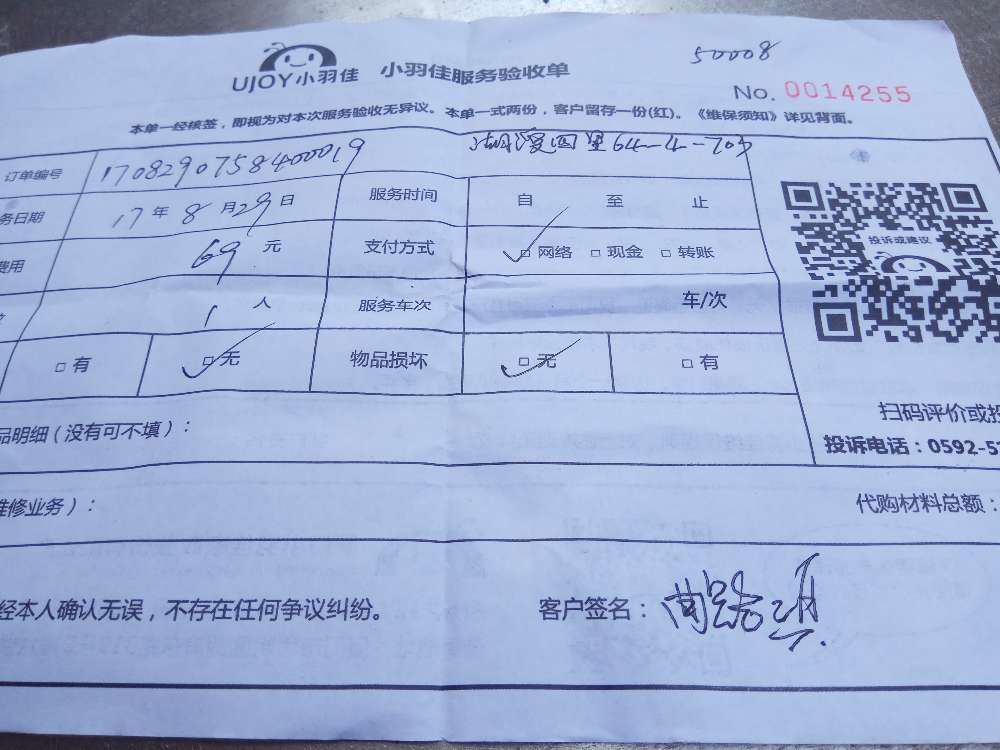 50008
UJOY小羽佳 小羽佳服务验收单
No. 0014255
本单一经核签，即视为对本次服务验收无异议。本单一式两份，客户留存一份(红)。《维保须知》详见背面。
64-4-703
订单编号 1708290758400019
务日期 17年8月29日 服务时间 自 至 止
费用 69元 支付方式 □网络 □现金 □转账
投诉或建议
1人 服务车次 车/次
□有 □无 物品损坏 □无 □有
扫码评价或投
品明细（没有可不填）：
投诉电话：0592-5
维修业务）：
代购材料总额：
经本人确认无误，不存在任何争议纠纷。 客户签名：